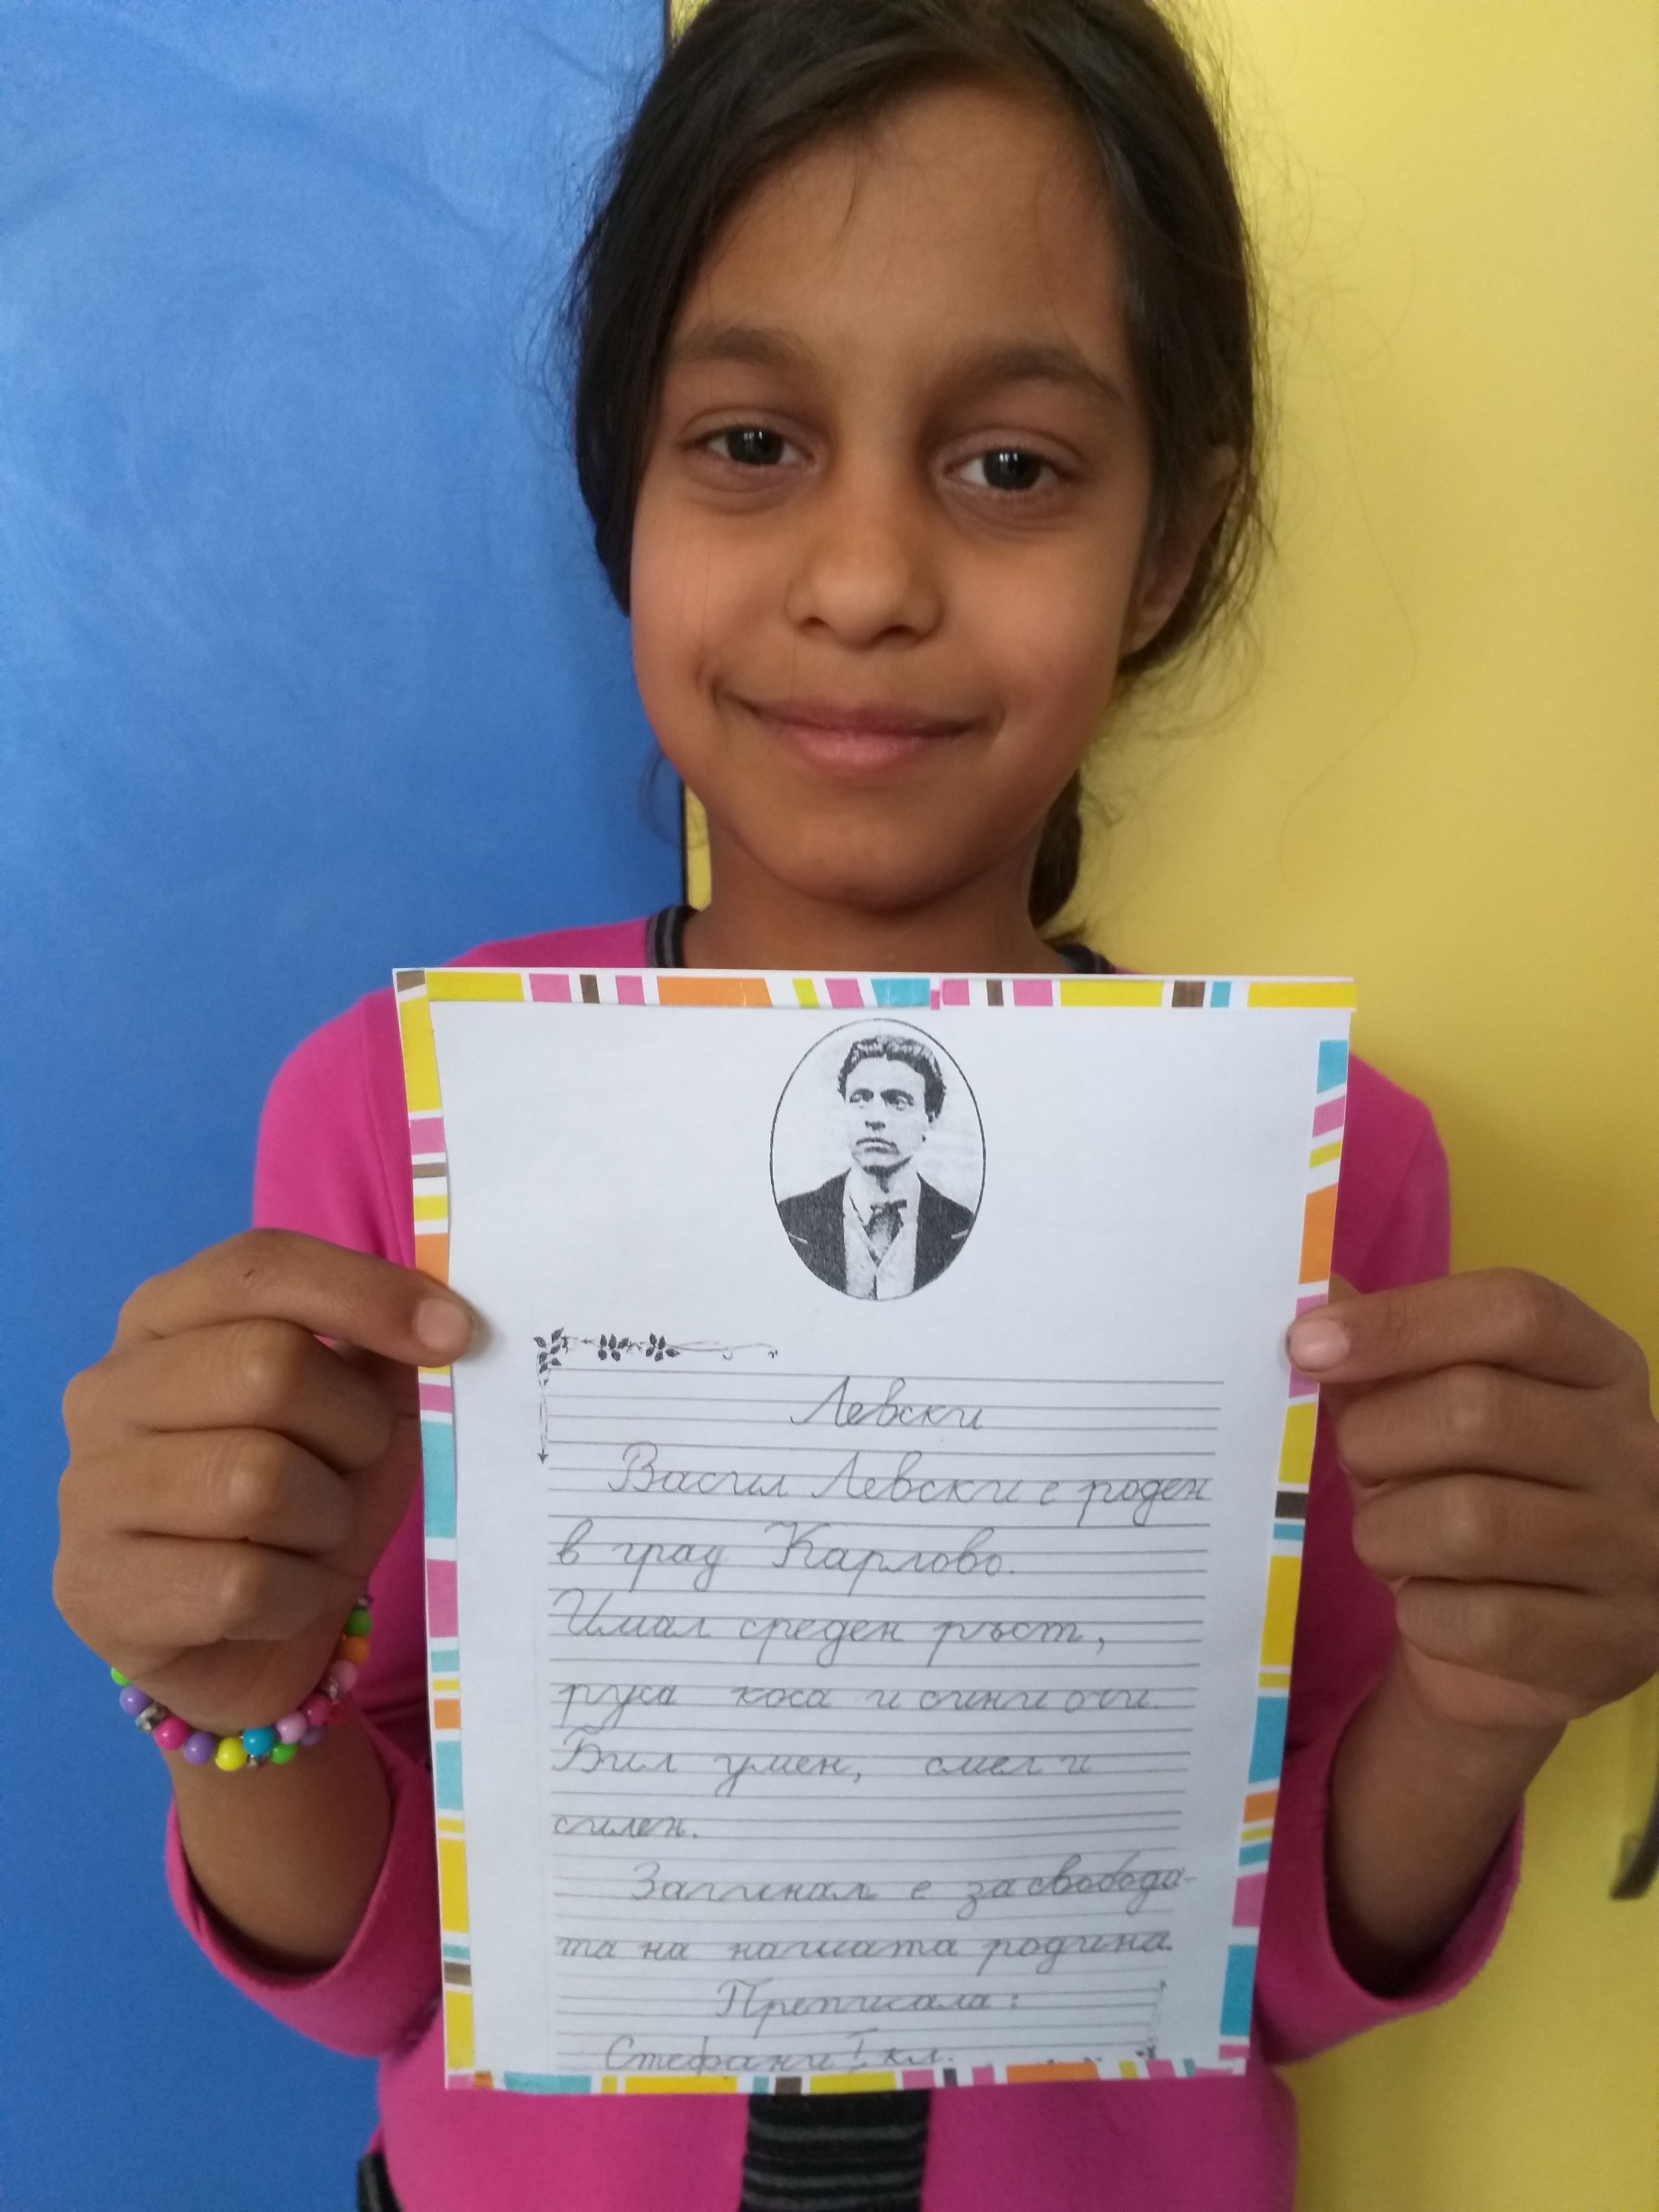 Левски
Васил Левски е роден
в град Карлово.
Имал среден ръст,
руса коса и сини очи.
Бил умен, смел и
силен.
Загинал е за свобода-
та на нашата родина.
Преписала:
Стефани I кл.